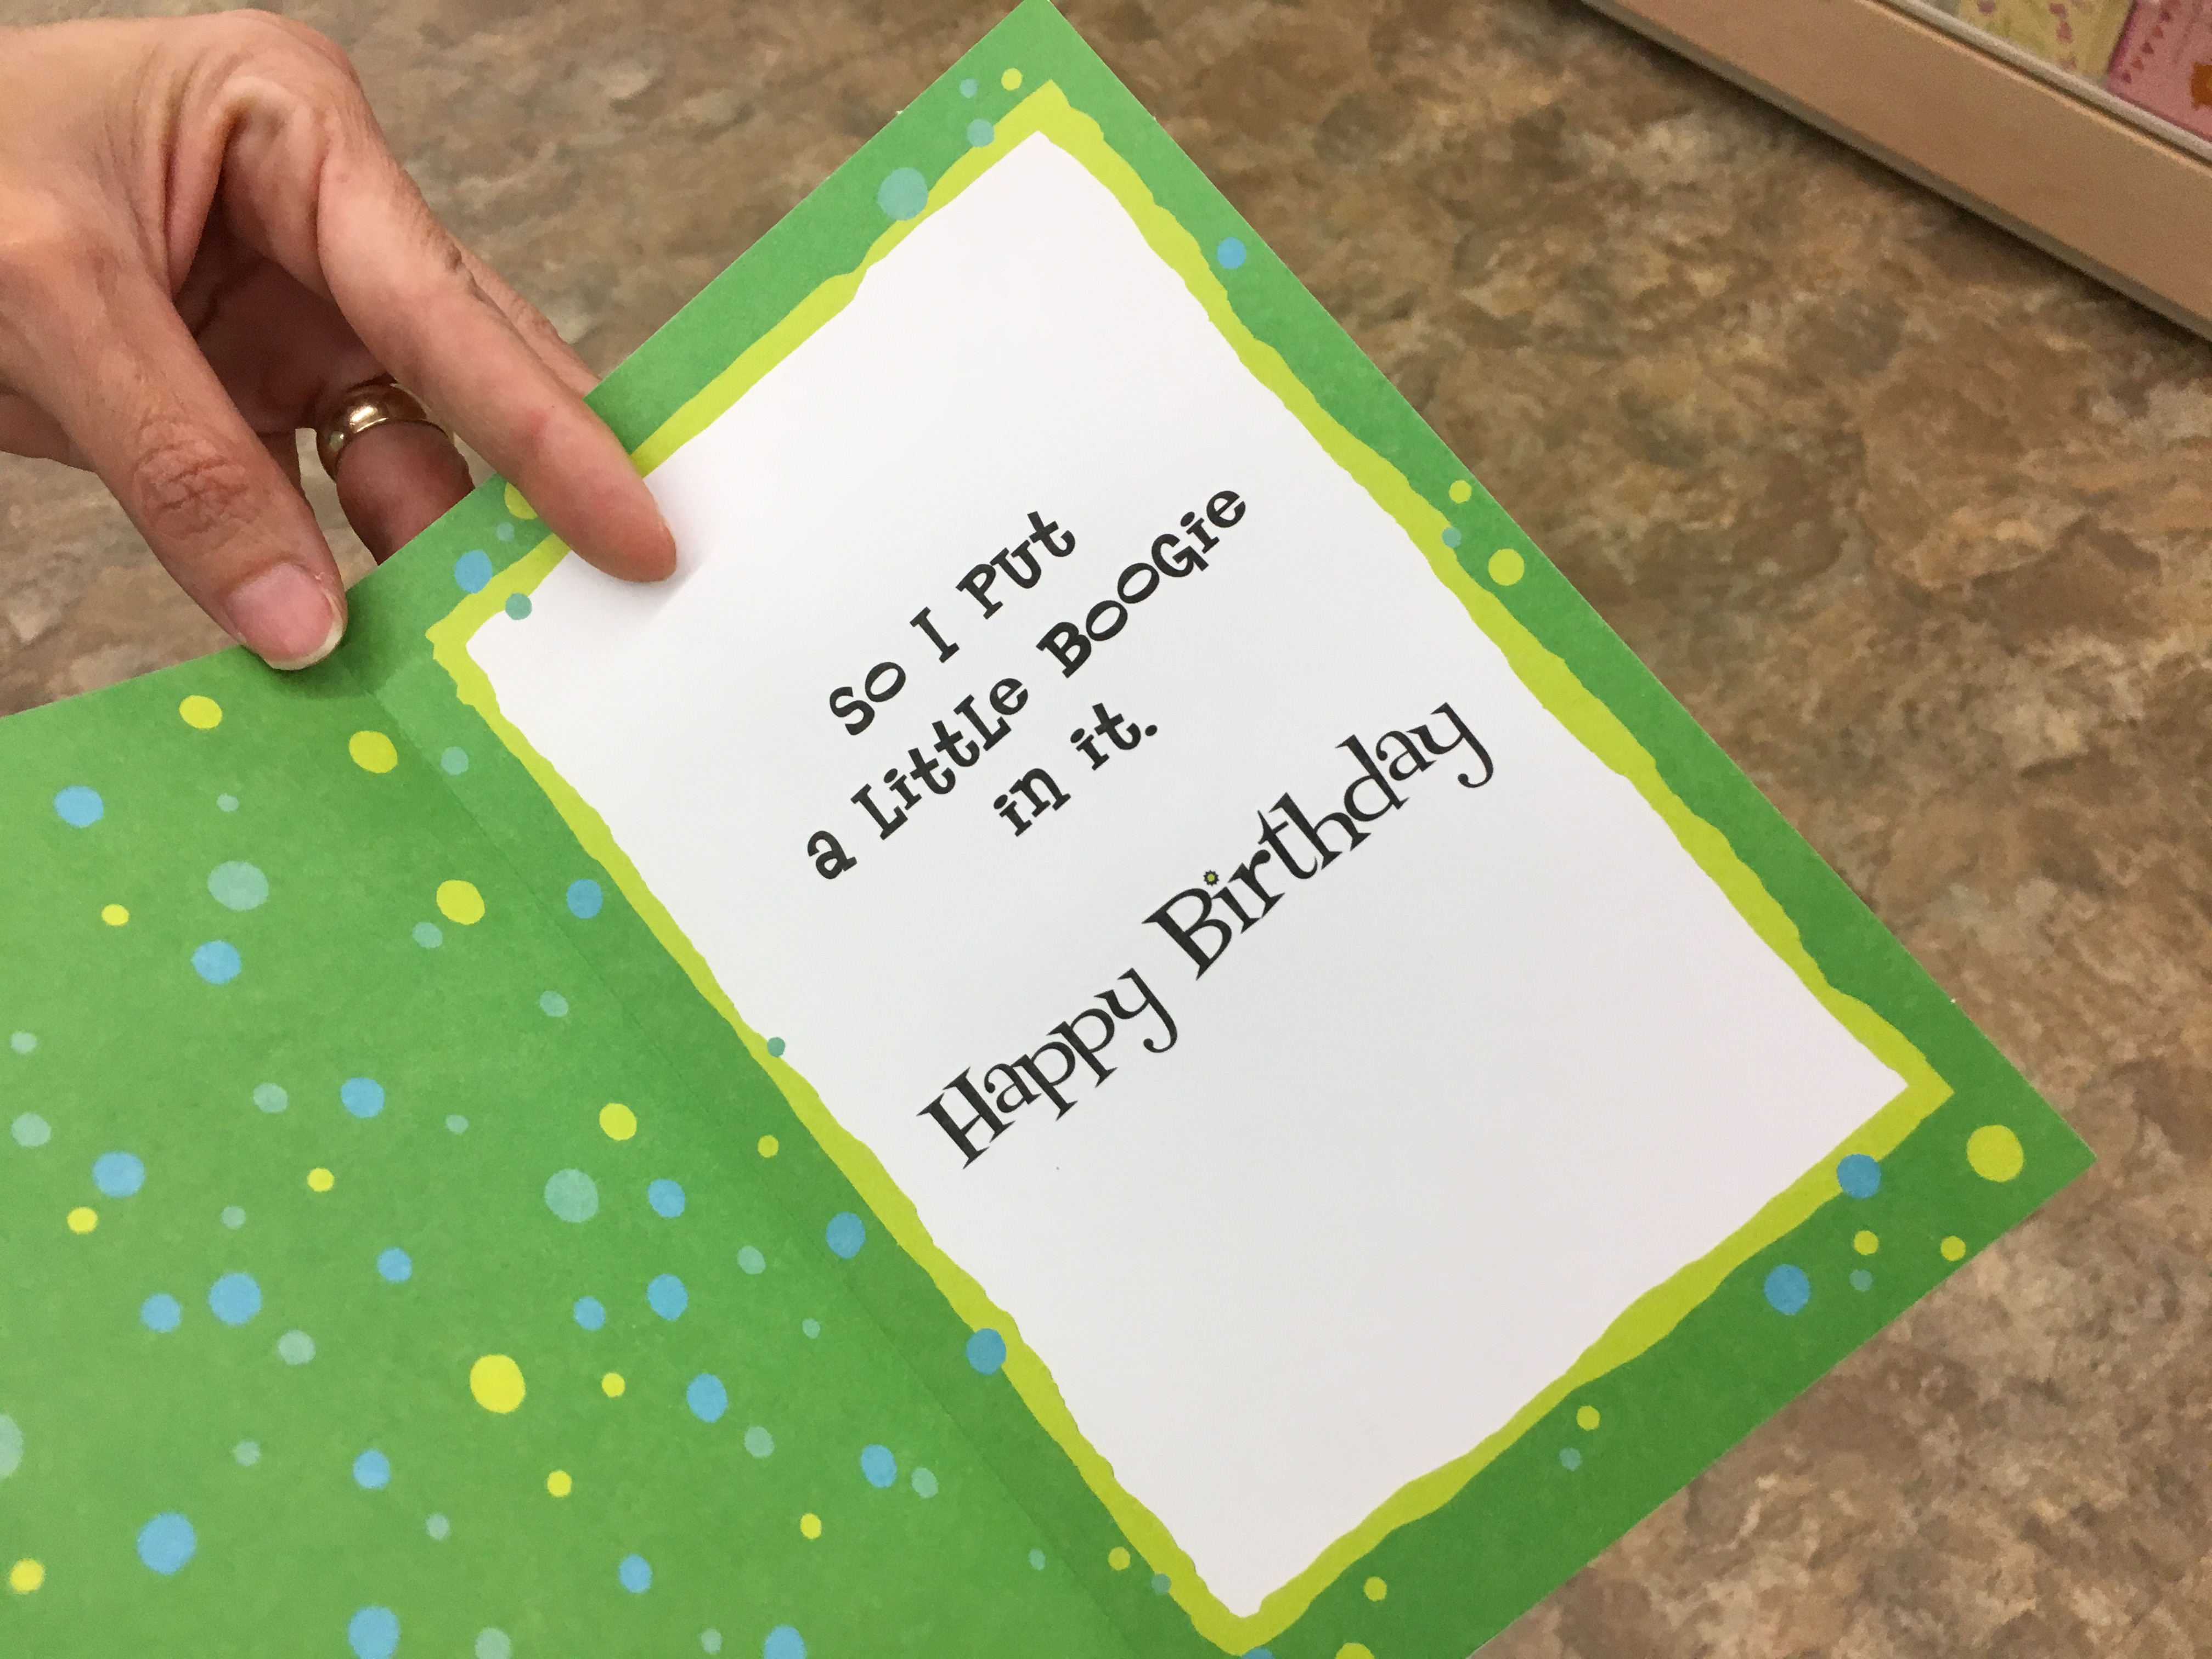 So I Put
a Little Boogie
in it.
Happy Birthday